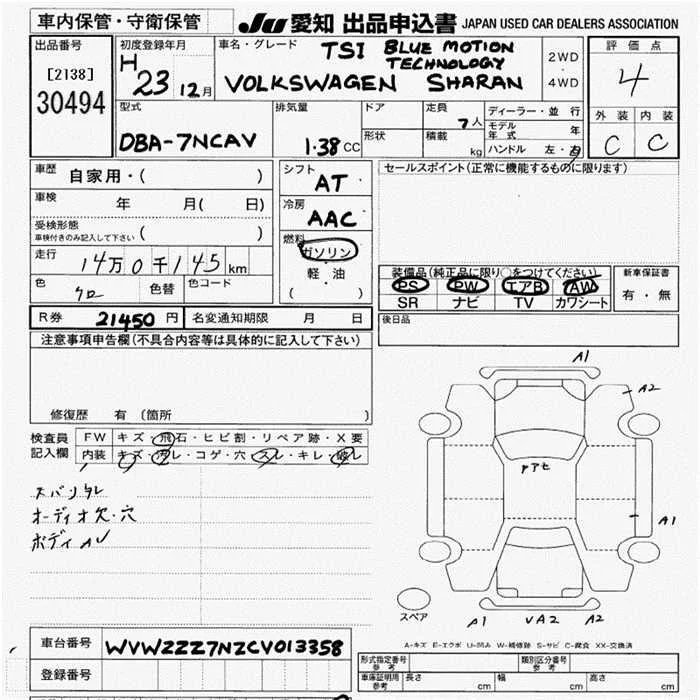 車内保管・守衛保管
JU 愛知 出品申込書 JAPAN USED CAR DEALERS ASSOCIATION
出品番号
[2138]
30494
初度登録年月
H 23 12月
車名・グレード TSI BLUE MOTION TECHNOLOGY
VOLKSWAGEN SHARAN
2WD
・
4WD
評価点
4
外装 内装
C C
型式
DBA-7NCAV
排気量
1.38CC
ドア
形状
定員
7人
積載
kg
ディーラー・並行
モデル年式 年
ハンドル 左・右
車歴 自家用・( )
車検 年 月( 日)
受検形態
車検付きのみ記入して下さい ( )
走行 14万0千145km
色 クロ 色替 色コード
シフト
AT
冷房
AAC
燃料
ガソリン
・
軽・油
( )
セールスポイント(正常に機能するものに限ります)
装備品(純正品に限り○をつけてください)
PS PW エアB AW
SR ナビ TV カワシート
新車保証書
有・無
R券 21450円 名変通知期限 月 日
後日品
注意事項申告欄(不具合内容等は具体的に記入して下さい)
修復歴 有 (箇所 )
検査員記入欄
FW キズ・飛石・ヒビ割・リペア跡・X要
内装 キズ・汚レ・コゲ・穴・スレ・キレ・破レ
オーディオ欠・穴
A1
A2
A1
スペア
A1 UA2 A2
A-キズ E-エクボ U-凹み W-補修跡 S-サビ C-腐食 XX-交換済
車台番号 WVWZZZ7NZCV013358
登録番号
形式指定番号 参考 類別区分番号 参考
車庫証明用 参考 長さ cm 幅 cm 高さ cm